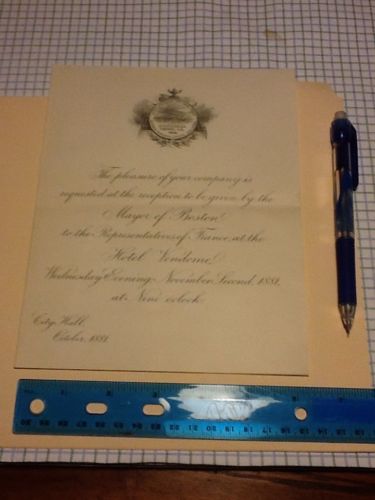 The pleasure of your company is
requested at the reception to be given by the
Mayor of Boston
to the Representatives of France, at the
Hotel Vendome
Wednesday Evening, November Second, 1881,
at Nine o'clock
City Hall
October, 1881.